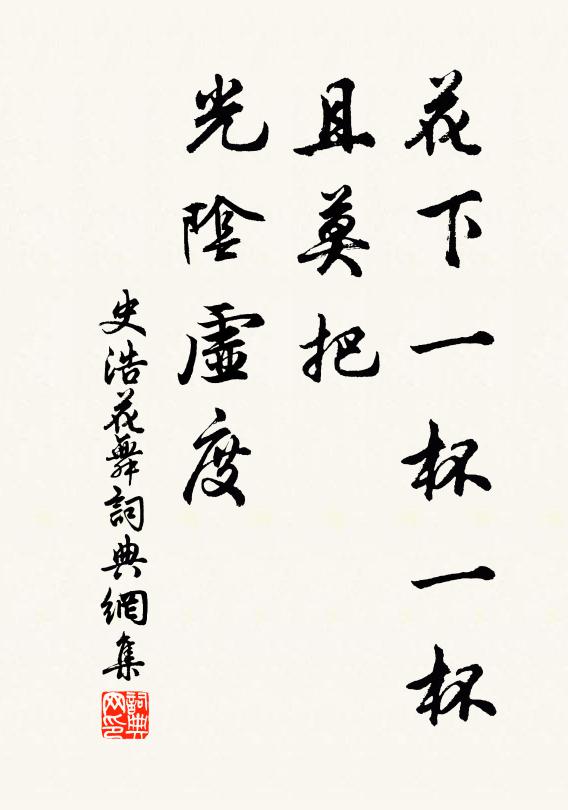 花下一杯一杯
且莫把
光陰虛度
史浩花舞詞典網集
詞典
网印